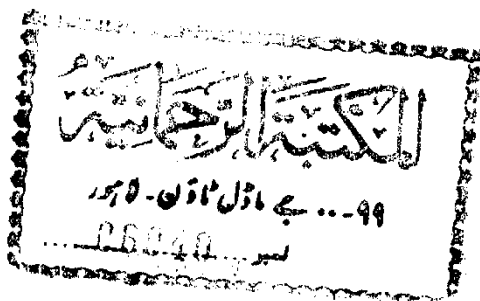 المكتبة الرحمانية
۹۹... جے ماڈل ٹاؤن۔ لاہور
نمبر